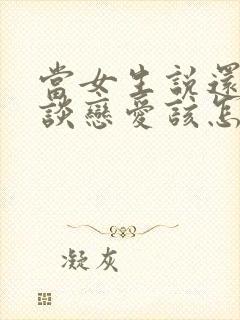 當女生說還
談戀愛該怎
凝灰